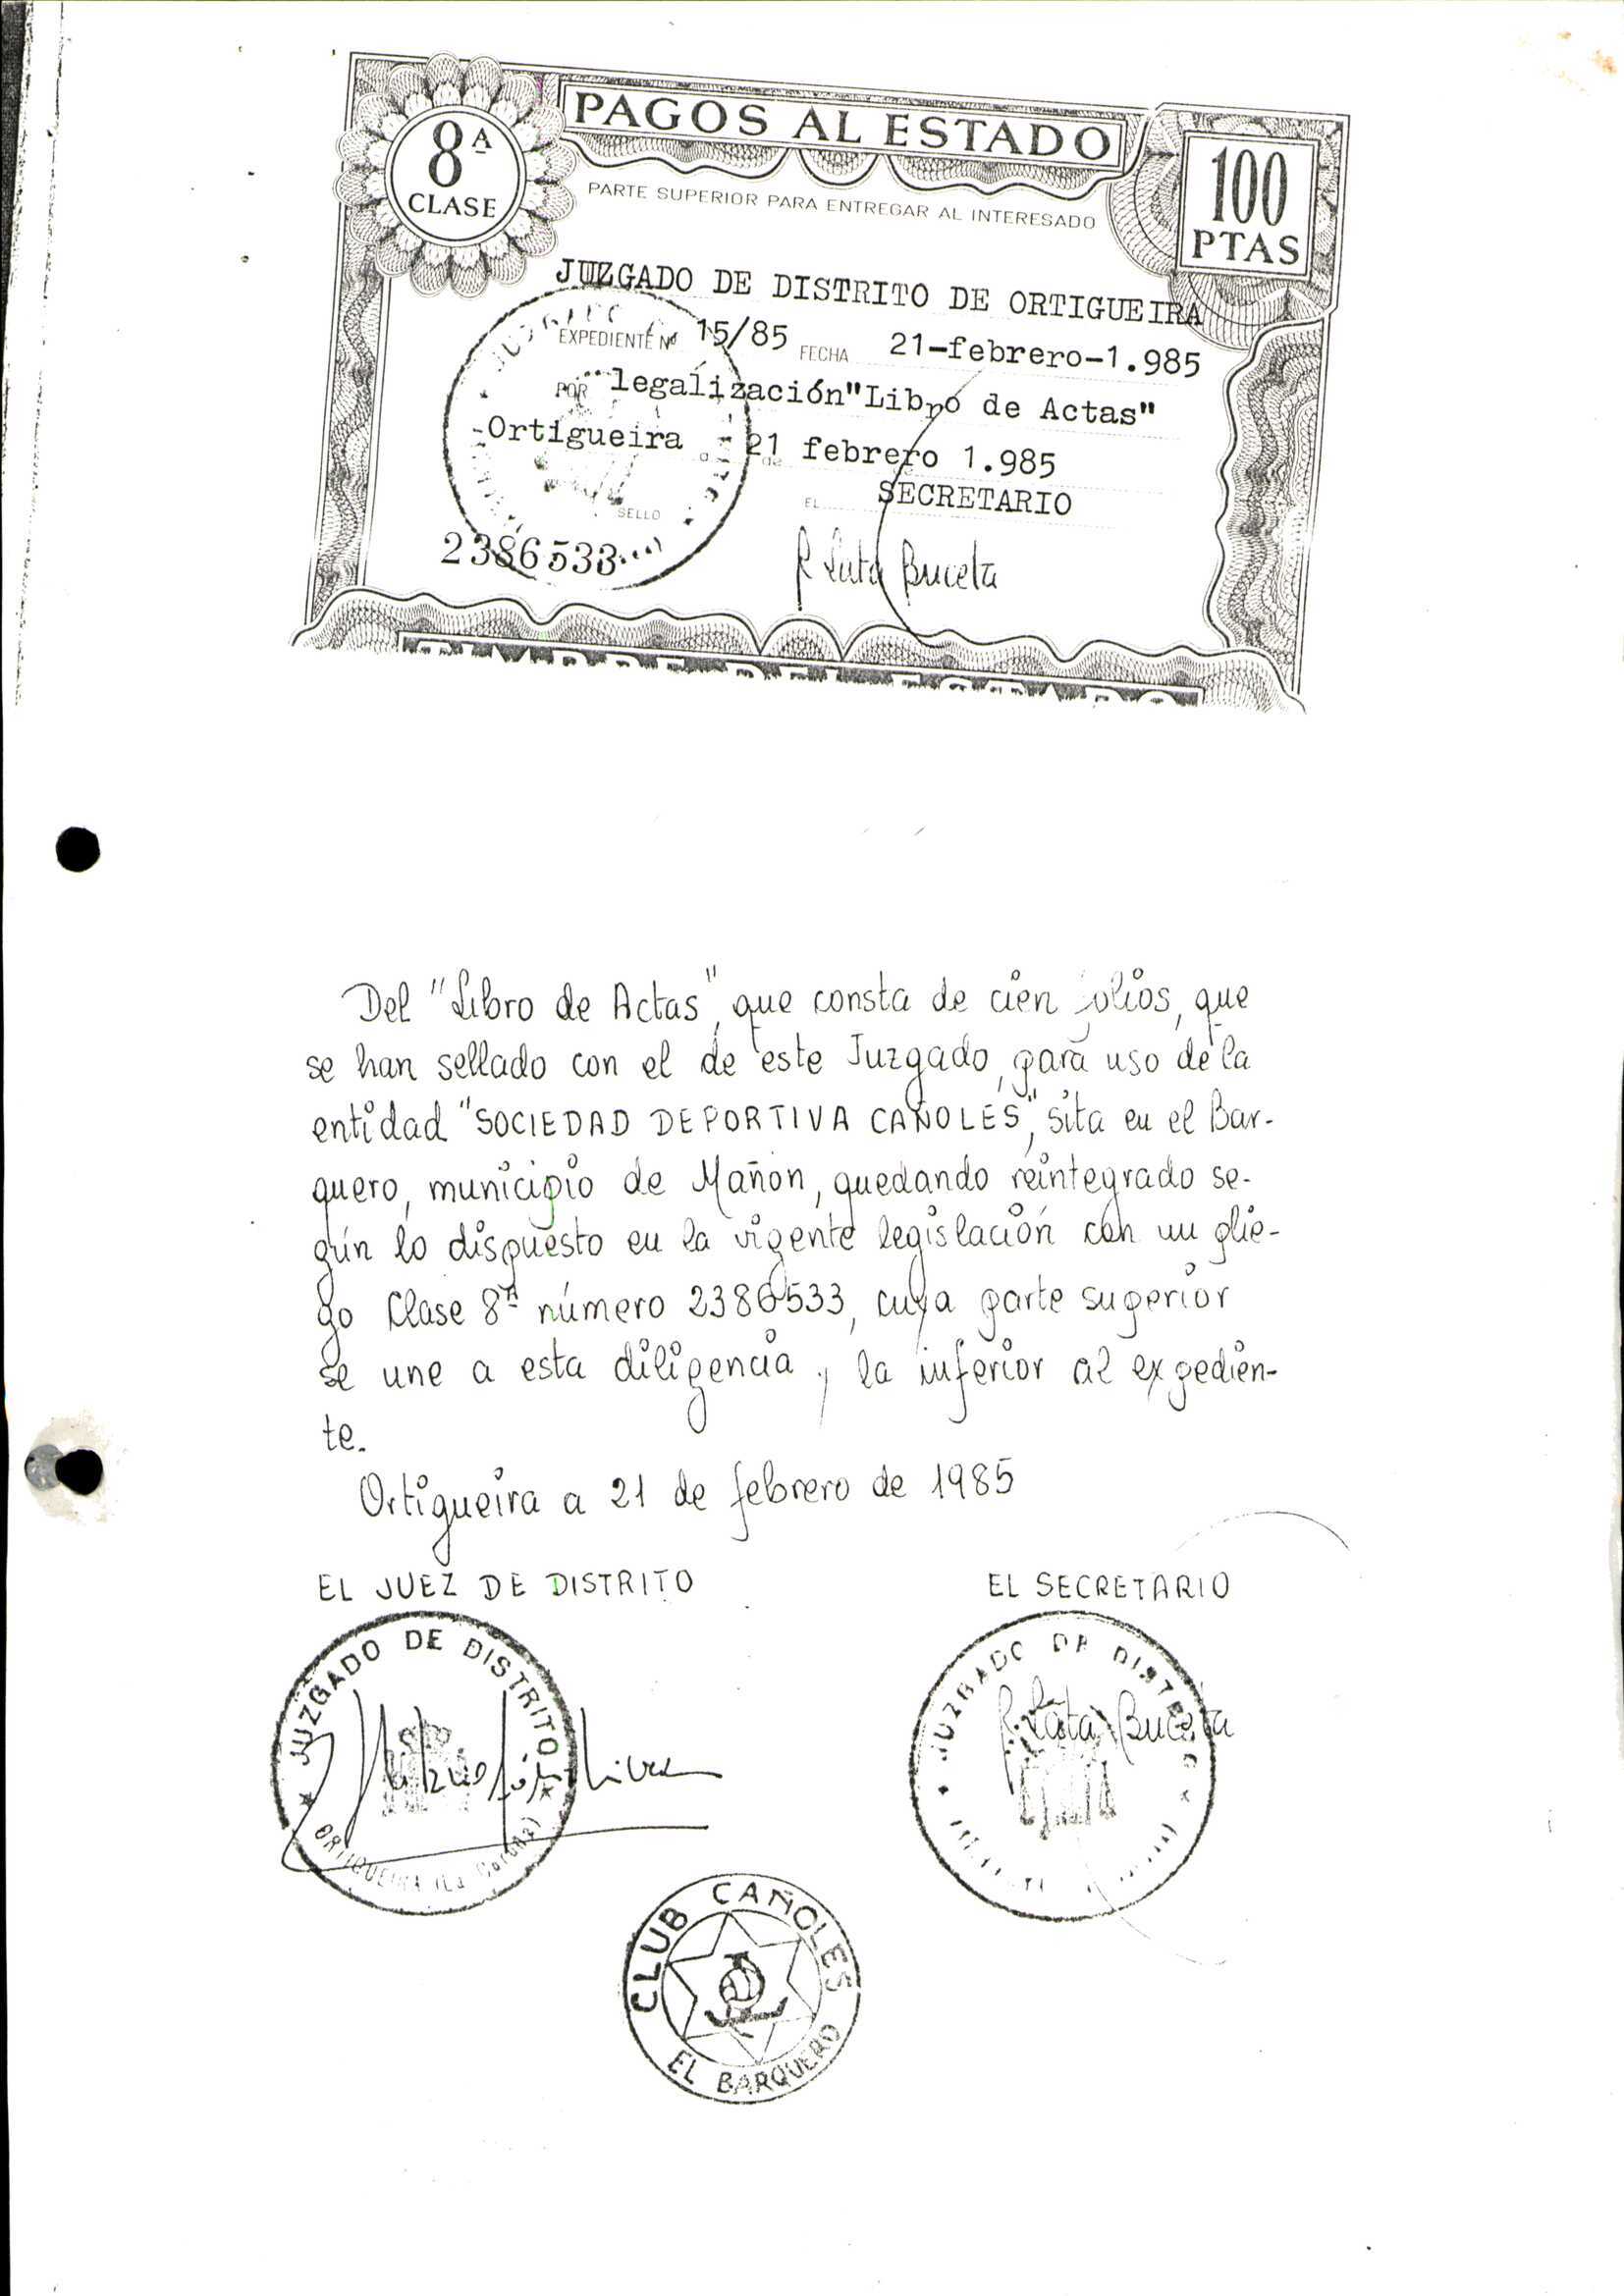 8ª
CLASE
PAGOS AL ESTADO
100
PTAS
PARTE SUPERIOR PARA ENTREGAR AL INTERESADO
JUZGADO DE DISTRITO DE ORTIGUEIRA
EXPEDIENTE Nº 15/85 FECHA 21-febrero-1.985
POR legalización"Libro de Actas"
Ortigueira a 21 de febrero 1.985
EL SECRETARIO
SELLO
2386533
R Lata Buceta
Del "Libro de Actas", que consta de cien folios, que
se han sellado con el de este Juzgado, para uso de la
entidad "SOCIEDAD DEPORTIVA CAÑOLES", sita en el Bar-
quero, municipio de Mañon, quedando reintegrado se-
gún lo dispuesto en la vigente legislación con un plie-
go Clase 8ª número 2386533, cuya parte superior
se une a esta diligencia y la inferior al expedien-
te.
Ortigueira a 21 de febrero de 1985
EL JUEZ DE DISTRITO EL SECRETARIO
JUZGADO DE DISTRITO
ORTIGUEIRA (La Coruña)
JUZGADO DE DISTRITO
R. Lata Buceta
CLUB CAÑOLES
EL BARQUERO